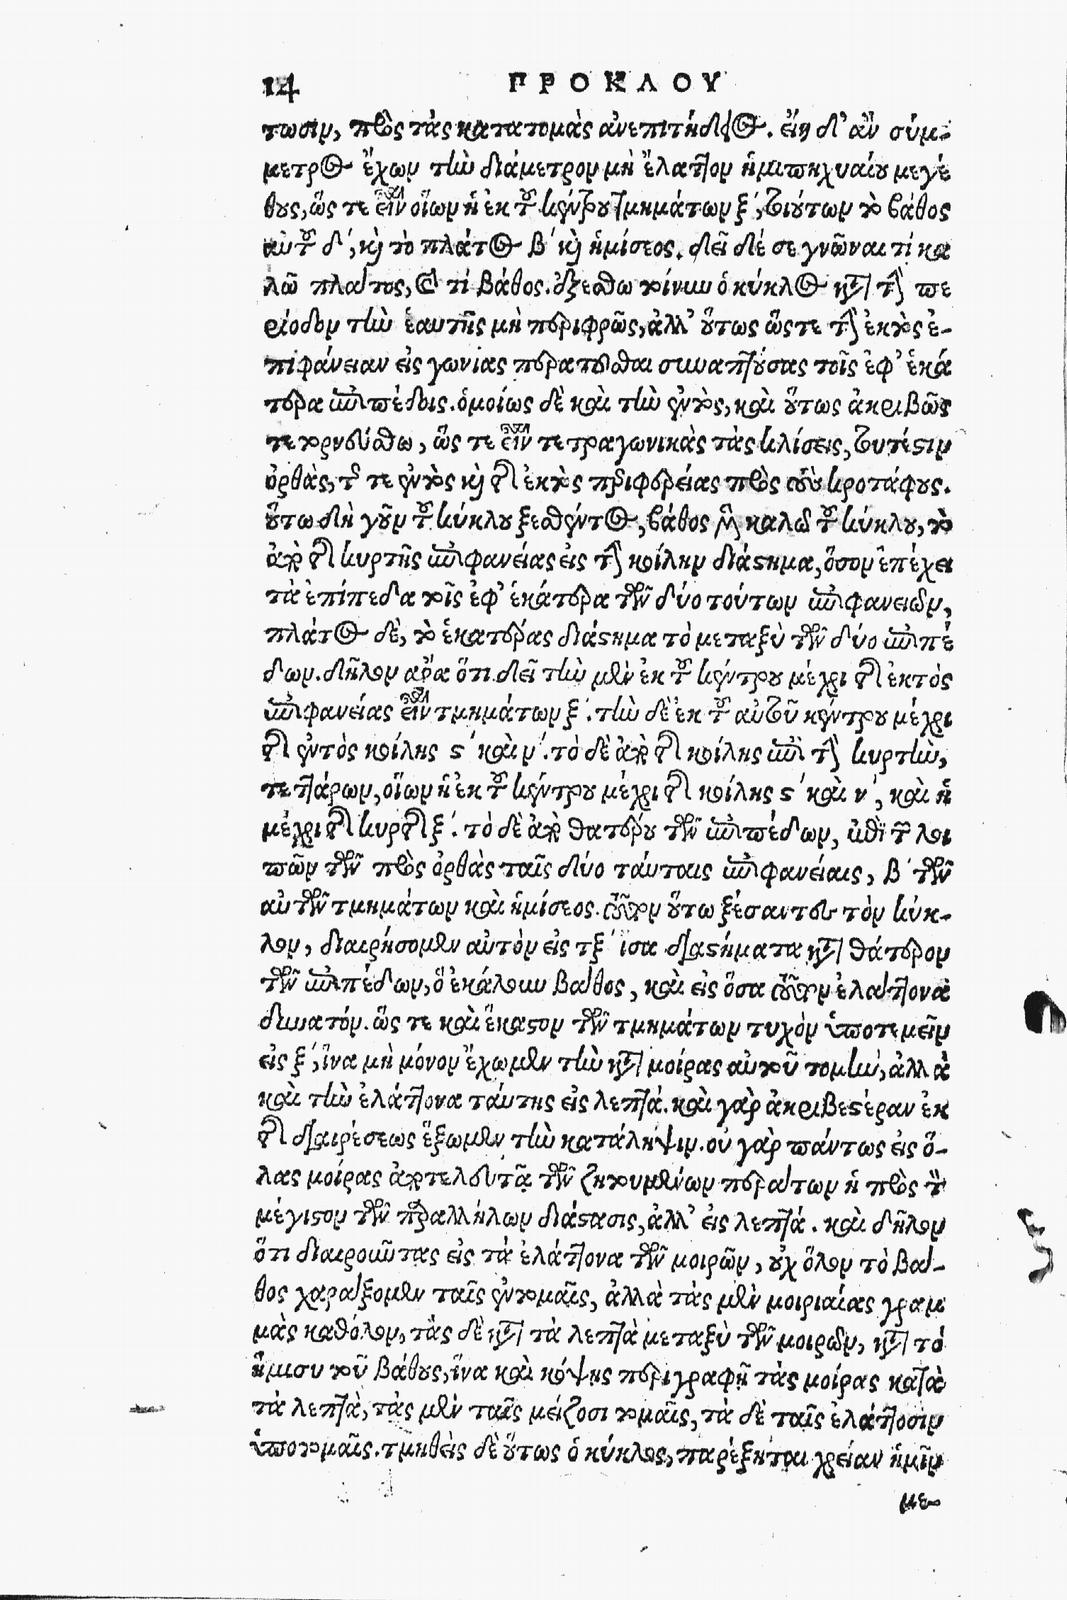 14 ΠΡΟΚΛΟΥ
τωσιν, πρὸς τὰς κατατομὰς ἀνεπιτήδειος. εἴη δ' ἂν σύμ-
μετρος ἔχων τὴν διάμετρον μὴ ἔλαττον ἡμιπηχυαίου μεγέ
θους, ὥς τε εἶναι οἵων ἡ ἐκ τοῦ κέντρου τμημάτων ξ', τοιούτων τὸ βάθος
αὐτοῦ δ', καὶ τὸ πλάτος β' καὶ ἡμίσεος. δεῖ δέ σε γνῶναι τί κα
λῶ πλάτος, καὶ τί βάθος. ἐξέσθω τοίνυν ὁ κύκλος κατὰ τὴν πε
ρίοδον τὴν ἑαυτῆς μὴ περιφερῶς, ἀλλ' οὕτως ὥστε τὴν ἐκτὸς ἐ-
πιφάνειαν εἰς γωνίας περατοῦσθαι συναπτούσας τοῖς ἐφ' ἑκά
τερα ἐπιπέδοις. ὁμοίως δὲ καὶ τὴν ἐντὸς, καὶ οὕτως ἀκριβῶς
τετορνεύσθω, ὥς τε εἶναι τετραγωνικὰς τὰς κλίσεις, τουτέστιν
ὀρθὰς, τῆς τε ἐντὸς καὶ τῆς ἐκτὸς περιφερείας πρὸς τοὺς κροτάφους.
οὕτω δὴ γοῦν τοῦ κύκλου ξεσθέντος, βάθος μὲν καλῶ τοῦ κύκλου, τὸ
ἀπὸ τῆς κυρτῆς ἐπιφανείας εἰς τὴν κοίλην διάστημα, ὅσον ἐπέχει
τὰ ἐπίπεδα τοῖς ἐφ' ἑκάτερα τῶν δύο τούτων ἐπιφανειῶν,
πλάτος δὲ, τὸ ἑκατέρας διάστημα τὸ μεταξὺ τῶν δύο ἐπιπέ
δων. δῆλον ἄρα ὅτι δεῖ τὴν μὲν ἐκ τοῦ κέντρου μέχρι τῆς ἐκτὸς
ἐπιφανείας εἶναι τμημάτων ξ'. τὴν δὲ ἐκ τοῦ αὐτοῦ κέντρου μέχρι
τῆς ἐντὸς κοίλης ϛ' καὶ ν'. τὸ δὲ ἀπὸ τῆς κοίλης ἐπὶ τὴν κυρτὴν,
τεττάρων, οἵων ἡ ἐκ τοῦ κέντρου μέχρι τῆς κοίλης ϛ' καὶ ν', καὶ ἡ
μέχρι τῆς κυρτῆς ξ'. τὸ δὲ ἀπὸ θατέρου τῶν ἐπιπέδων, ἐπὶ τὸ λοι
πὸν τῶν πρὸς ὀρθὰς ταῖς δύο ταύταις ἐπιφανείαις, β' τῶν
αὐτῶν τμημάτων καὶ ἡμίσεος. τοῦτον οὕτω ξέσαντες τὸν κύκ-
λον, διαιρήσομεν αὐτὸν εἰς τξ' ἴσα διαστήματα κατὰ θάτερον
τῶν ἐπιπέδων, ὃ ἐκάλουν βάθος, καὶ εἰς ὅσα τούτων ἐλάττονα
δυνατόν. ὥς τε καὶ ἕκαστον τῶν τμημάτων τυχὸν ὑποτεμεῖν
εἰς ξ', ἵνα μὴ μόνον ἔχωμεν τὴν κατὰ μοίρας αὐτοῦ τομὴν, ἀλλὰ
καὶ τὴν ἐλάττονα ταύτης εἰς λεπτά. καὶ γὰρ ἀκριβεστέραν ἐκ
τῆς διαιρέσεως ἕξωμεν τὴν κατάληψιν. οὐ γὰρ πάντως εἰς ὅ-
λας μοίρας ἀποτελεῖται τῶν ζητουμένων περάτων ἡ πρὸς τὸ
μέγιστον τῶν παραλλήλων διάστασις, ἀλλ' εἰς λεπτά. καὶ δῆλον
ὅτι διαιροῦντας εἰς τὰ ἐλάττονα τῶν μοιρῶν, οὐχ ὅλον τὸ βά-
θος χαράξομεν ταῖς ἐντομαῖς, ἀλλὰ τὰς μὲν μοιριαίας γραμ
μὰς καθόλου, τὰς δὲ κατὰ τὰ λεπτὰ μεταξὺ τῶν μοιρῶν, κατὰ τὸ
ἥμισυ τοῦ βάθους, ἵνα καὶ κόψης περιγραφῇ τὰς μοίρας κατὰ
τὰ λεπτὰ, τὰς μὲν ταῖς μείζοσι τομαῖς, τὰ δὲ ταῖς ἐλάττοσιν
ὑποτομαῖς. τμηθεὶς δὲ οὕτως ὁ κύκλος, παρέξηται χρείαν ἡμῖν
με-